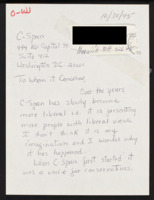 O-WW
10/26/95
C-Span
444 No Capitol St
Suite 412
Washington DC 20001
To Whom it Concerns,
Over the years
C-Span has slowly become
more liberal i.e. it is presenting
more people with liberal views.
I don't think it is my
imagination and I wonder why
it has happened.
When C-Span first started it
was a voice for conservatives.